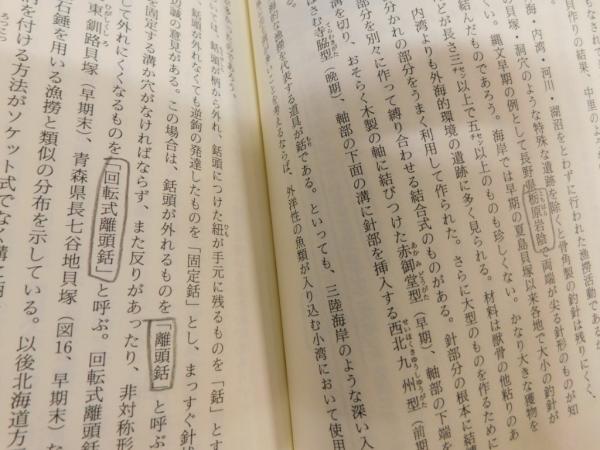 海、内湾・河川・湖沼をとわずに行われた漁撈活動であるか
貝塚、洞穴のような特殊な遺跡を除くと骨角製の釣針は残りにくく、
い。縄文早期の例として長野県栃原岩陰で両端が尖る針形のものが知
ものであろう。海岸では早期の夏島貝塚以来各地で大小の釣針が
どが長さ三センチ以上で五センチ以上のものも珍しくない。かなり大きな獲物を
内湾よりも外海的環境の遺跡に多く見られる。材料は獣骨の他粘りのあ
分かれの部分をうまく利用して作られた。さらに大型のものを作るために
部分を別々に作って縛り合わせる結合式のものがある。針部分の根本に結
溝を切り、おそらく木製の軸に結びつけた赤御堂型（早期）、軸部の下端を
む寺脇型（晩期）、軸部の下面の溝に針部を挿入する西北九州型（前期
的な漁撈を代表する道具が銛である。といっても、三陸海岸のような深い入
いことを考えるならば、外洋性の魚類が入り込む小湾において使用
いては、銛頭が柄から外れ、銛頭につけた紐が手元に残るものを「銛」とす
辺誠の意見がある。この場合は、銛頭が外れるものを「離頭銛」と呼ぶ
、銛頭が外れなくても逆鉤の発達したものを「固定銛」とし、まっすぐ針
を固定する溝か穴がなければならず、また反りがあったり、非対称形
して外れにくくなるものを「回転式離頭銛」と呼ぶ。回転式離頭銛
東釧路貝塚（早期末）、青森県長七谷地貝塚（図16、早期末）な
石錘を用いる漁撈と類似の分布を示している。以後北海道方
を付ける方法がソケット式でなく溝に